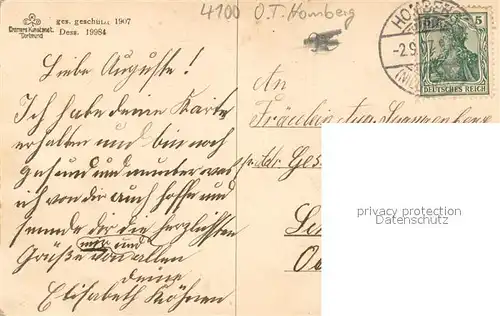 Cramers Kunstanst.
Dortmund
ges. geschützt 1907
Dess. 19984
4100 O.T. Homberg
HOMBERG
-2.9.
5
DEUTSCHES REICH
Liebe Auguste!
Ich habe deine Karte
erhalten und bin noch
gesund und munter was
ich von dir auch hoffe und
sende dir die herzlichsten
mir und
Grüße von allen
deine
Elisabeth Köhnen
An
Fräulein Aug.
privacy protection
Datenschutz